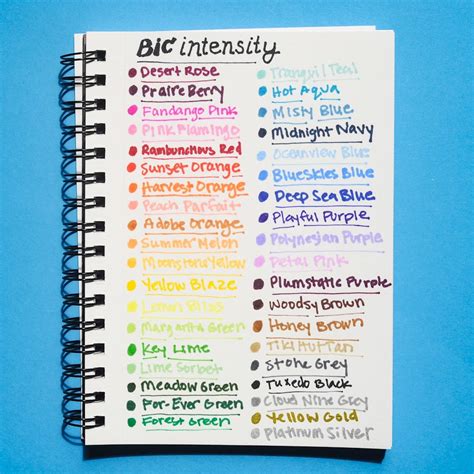 BIC intensity
Desert Rose
Praire Berry
Fandango Pink
Pink Flamingo
Rambunchous Red
Sunset Orange
Harvest Orange
Peach Parfait
Adobe Orange
Summer Melon
Moonstone Yellow
Yellow Blaze
Lemon Bliss
Margarita Green
Key Lime
Lime Sorbet
Meadow Green
For-Ever Green
Forest Green
Tranquil Teal
Hot Aqua
Misty Blue
Midnight Navy
Oceanview Blue
Blueskies Blue
Deep Sea Blue
Playful Purple
Polynesian Purple
Petal Pink
Plumstatic Purple
Woodsy Brown
Honey Brown
Tiki Hut Tan
Stone Grey
Tuxedo Black
Cloud Nine Grey
Yellow Gold
Platinum Silver